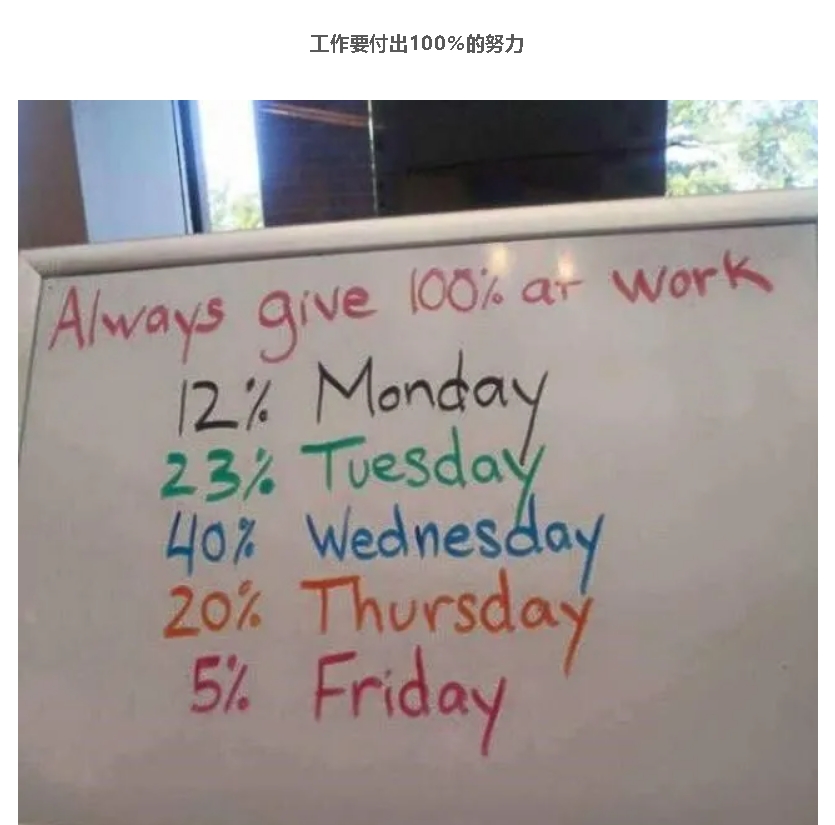 工作要付出100%的努力
Always give 100% at work
12% Monday
23% Tuesday
40% Wednesday
20% Thursday
5% Friday